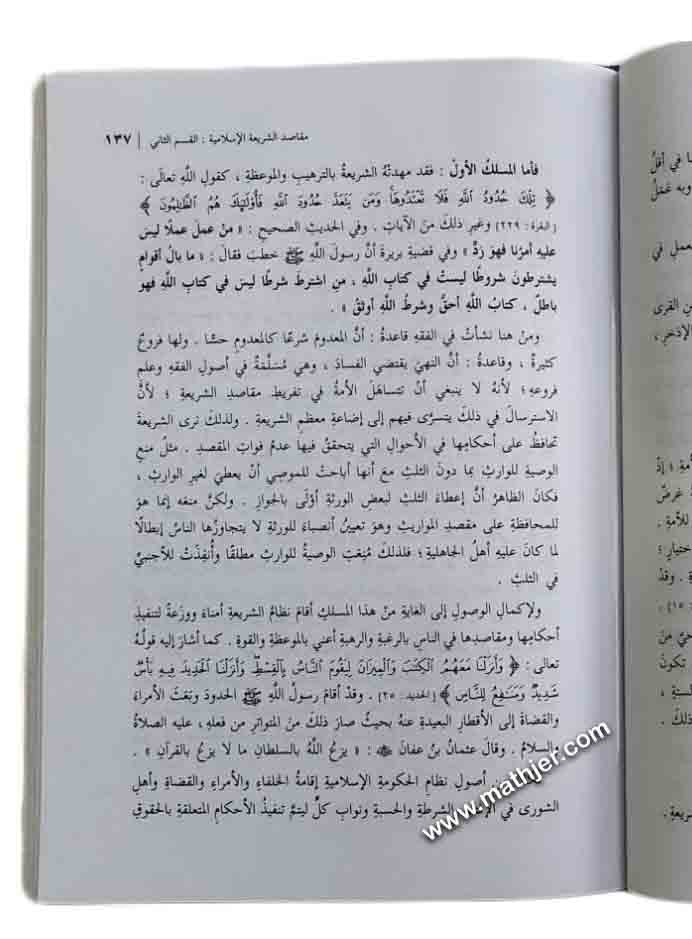 مقاصد الشريعة الإسلامية : القسم الثاني | ١٣٧
فأما المسلكُ الأولُ : فقد مهدتْهُ الشريعةُ بالترهيبِ والموعظةِ ، كقولِ اللَّهِ تعالَى :
﴿ تِلْكَ حُدُودُ اللَّهِ فَلَا تَعْتَدُوهَا وَمَن يَتَعَدَّ حُدُودَ اللَّهِ فَأُولَٰئِكَ هُمُ الظَّالِمُونَ ﴾
[البقرة : ٢٢٩] وغيرِ ذلكَ منَ الآياتِ . وفي الحديثِ الصحيحِ : « منْ عملَ عملًا ليسَ
عليهِ أمرُنا فهوَ ردٌّ » وفي قضيةِ بريرةَ أنَّ رسولَ اللَّهِ ﷺ خطبَ فقالَ : « ما بالُ أقوامٍ
يشترطونَ شروطًا ليستْ في كتابِ اللَّهِ ، منِ اشترطَ شرطًا ليسَ في كتابِ اللَّهِ فهو
باطلٌ ، كتابُ اللَّهِ أحقُّ وشرطُ اللَّهِ أوثقُ » .
ومنْ هنا نشأتْ في الفقهِ قاعدةُ : أنَّ المعدومَ شرعًا كالمعدومِ حسًّا . ولها فروعٌ
كثيرةٌ ، وقاعدةُ : أنَّ النهيَ يقتضي الفسادَ ، وهي مُسَلَّمَةٌ في أصولِ الفقهِ وعلمِ
فروعِهِ ؛ لأنهُ لا ينبغي أنْ تتساهَلَ الأمةُ في تفريطِ مقاصدِ الشريعةِ ؛ لأنَّ
الاسترسالَ في ذلكَ يتسرَّى فيهم إلى إضاعةِ معظمِ الشريعةِ . ولذلكَ ترى الشريعةَ
تحافظُ على أحكامِها في الأحوالِ التي يتحققُ فيها عدمُ فواتِ المقصدِ . مثلُ منعِ
الوصيةِ للوارثِ بما دونَ الثلثِ معَ أنها أباحتْ للموصِي أنْ يعطيَ لغيرِ الوارثِ ،
فكانَ الظاهرُ أنَّ إعطاءَ الثلثِ لبعضِ الورثةِ أوْلَى بالجوازِ . ولكنَّ منعَه إنما هوَ
للمحافظةِ على مقصدِ المواريثِ وهوَ تعيينُ أنصباءَ للورثةِ لا يتجاوزُها الناسُ إبطالًا
لما كانَ عليهِ أهلُ الجاهليةِ ؛ فلذلكَ مُنِعَتِ الوصيةُ للوارثِ مطلقًا وأُنفِذَتْ للأجنبيِّ
في الثلثِ .
ولإكمالِ الوصولِ إلى الغايةِ منْ هذا المسلكِ أقامَ نظامُ الشريعةِ أمناءَ ووزَعةً لتنفيذِ
أحكامِها ومقاصدِها في الناسِ بالرغبةِ والرهبةِ أعني بالموعظةِ والقوةِ . كما أشارَ إليه قولُهُ
تعالى : ﴿ وَأَنزَلْنَا مَعَهُمُ الْكِتَٰبَ وَالْمِيزَانَ لِيَقُومَ النَّاسُ بِالْقِسْطِ وَأَنزَلْنَا الْحَدِيدَ فِيهِ بَأْسٌ
شَدِيدٌ وَمَنَٰفِعُ لِلنَّاسِ ﴾ [الحديد : ٢٥] . وقدْ أقامَ رسولُ اللَّهِ ﷺ الحدودَ وبَعَثَ الأمراءَ
والقضاةَ إلى الأقطارِ البعيدةِ عنهُ بحيثُ صارَ ذلكَ منَ المتواترِ من فعلِهِ ، عليهِ الصلاةُ
والسلامُ . وقالَ عثمانُ بنُ عفانَ : « يزعُ اللَّهُ بالسلطانِ ما لا يزعُ بالقرآنِ » .
أصولِ نظامِ الحكومةِ الإسلاميةِ إقامةُ الخلفاءِ والأمراءِ والقضاةِ وأهلِ
الشورى في الشرطةِ والحسبةِ ونوابِ كلٍّ ليتمَّ تنفيذُ الأحكامِ المتعلقةِ بالحقوقِ
www.mathjer.com
ا في أقلِّ
وبه عَمَلُ
يعمل في
نِ القرى
الإذخرِ ،
مةِ ؛ إذْ
غرضٌ
للأمةِ .
ختيارِ ؛
. وقدْ
[١٥ .
حيِّ منَ
تكونُ
لسنةِ ،
ذلكَ .
ريعةِ .